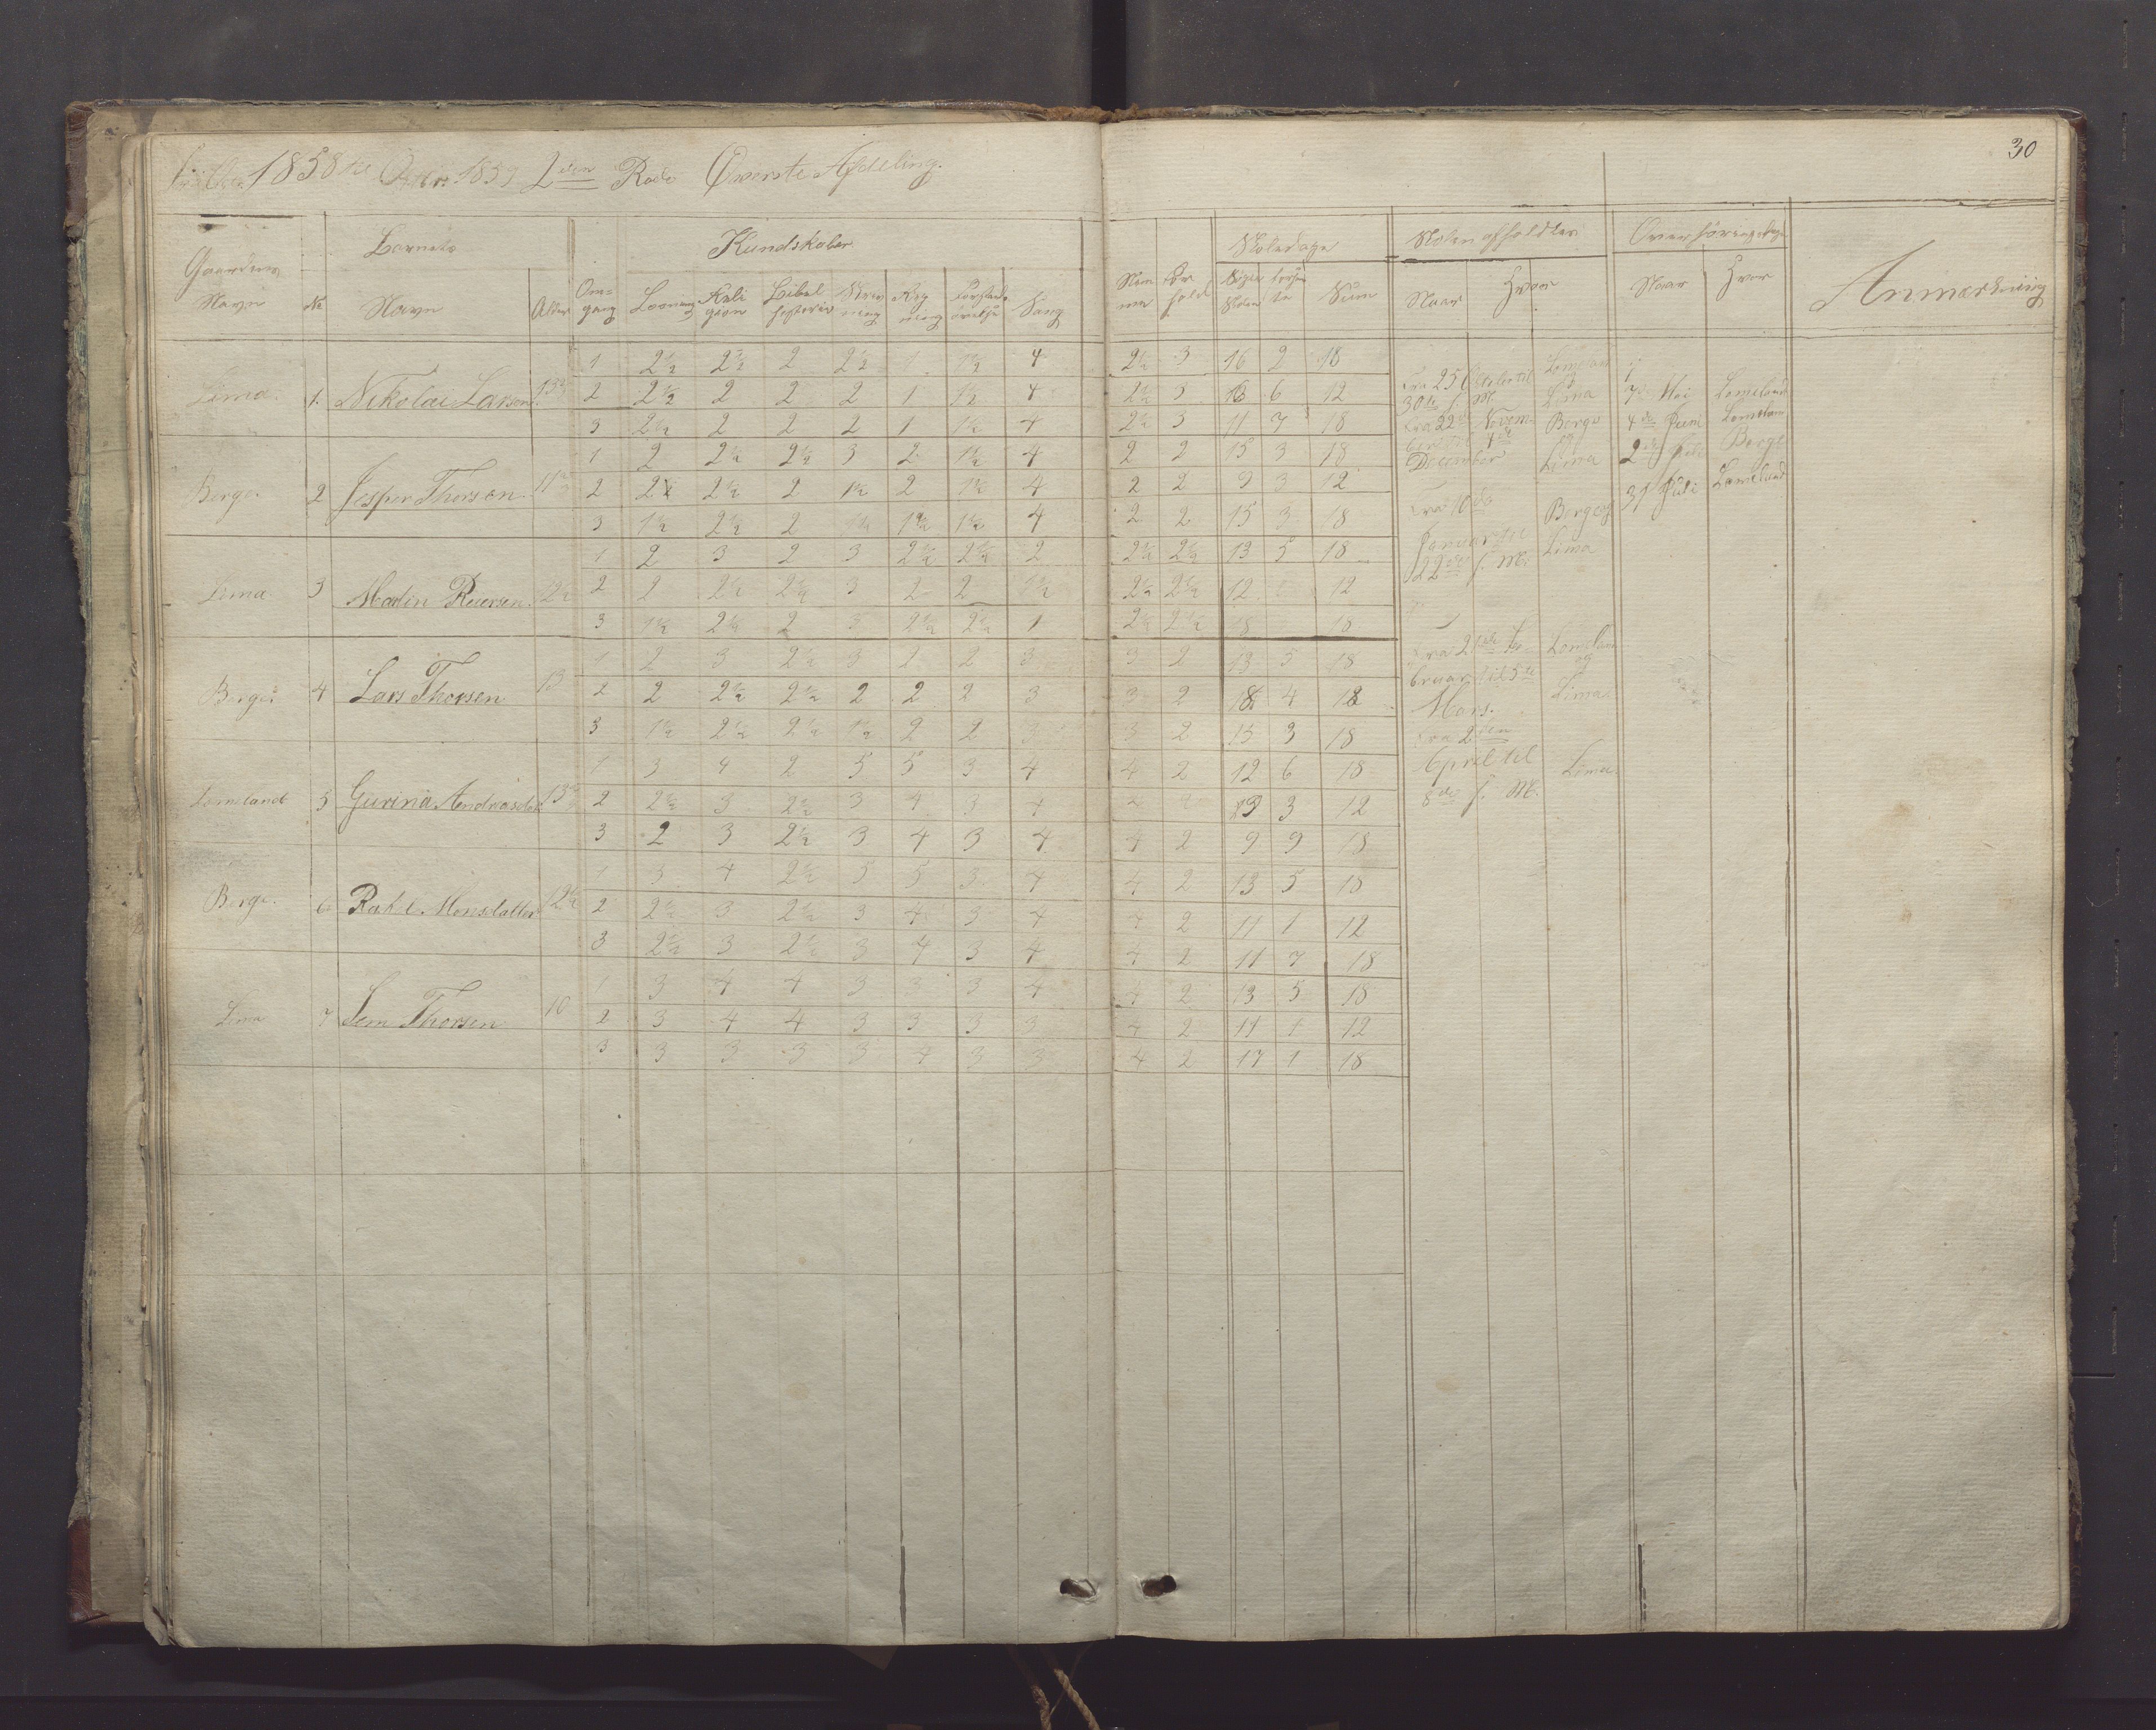 30
1858 til 1859 2den Rode Øverste Afdeling.
Gaardens Navn No Barnets Navn Alder Omgang Kundskaber Læsning Religion Bibelhistorie Skrivning Regning Forstandsøvelse Sang Nemme Forhold Skoledage Søgte Skolen Forsømte Sum Skolen afholdtes Naar Hvor Overhøringsdage Naar Hvor Anmærkning
Lima. 1. Nikolai Larsen. 13½
1 2½ 2½ 2 2½ 1 1½ 4 2½ 3 16 2 18
2 2½ 2 2 2 1 1½ 4 2½ 3 6 12
3 2½ 2 2 2 1 1½ 4 2½ 3 11 7 18
Berge. 2 Jesper Thorsen. 11½
1 2 2½ 2½ 3 2 1½ 4 2 2 15 3 18
2 2½ 2 1½ 2 1½ 4 2 2 9 3 12
3 1½ 2½ 2 1½ 1½ 1½ 4 2 2 15 3 18
Lima 3 Malin Reiersen. 12½
1 2 3 2 3 2½ 2½ 2 2½ 2½ 13 5 18
2 2 2½ 2½ 3 2 2 1½ 2½ 2½ 12 12
3 1½ 2½ 2 3 2½ 2½ 1 2½ 2½ 18 18
Berge 4 Lars Thorsen 13
1 2 3 2½ 3 2 2 3 3 2 13 5 18
2 2 2½ 2½ 2 2 2 3 3 2 4
3 1½ 2½ 2½ 1½ 2 2 3 3 2 15 3 18
Lomeland 5 Gurina Andreasdat 13½
1 3 4 2 5 5 3 4 4 2 12 6 18
2 2½ 3 2½ 3 4 3 4 4 2 9 3 12
3 2 3 2½ 3 4 3 4 4 2 9 9 18
Berge. 6 Rakel Monsdatter 12½
1 3 4 2½ 5 5 3 4 4 2 13 5 18
2 2½ 3 2½ 3 4 3 4 4 2 11 1 12
3 2½ 3 2½ 3 4 3 4 4 2 11 7 18
Lima 7 Sem Thorsen 10
1 3 4 4 3 3 3 4 4 2 13 5 18
2 3 4 4 3 3 3 3 4 2 11 1 12
3 3 3 3 3 4 3 3 4 2 17 1 18
Fra 25 Octobe til Lomeland og
30te f. M. Lima
Fra 22de Novem- Berge
ber til 4de og
December Lima
Fra 10de Berge og
Januar til Lima
22de f. M.
Fra 21de Fe- Lomeland
bruar til 5te og
Mars. Lima
Fra 2den
April til Lima.
8de f. M.
7de Mai Lomeland
4de Juni Lomeland
2de Juli Berge
31 Juli Lomeland